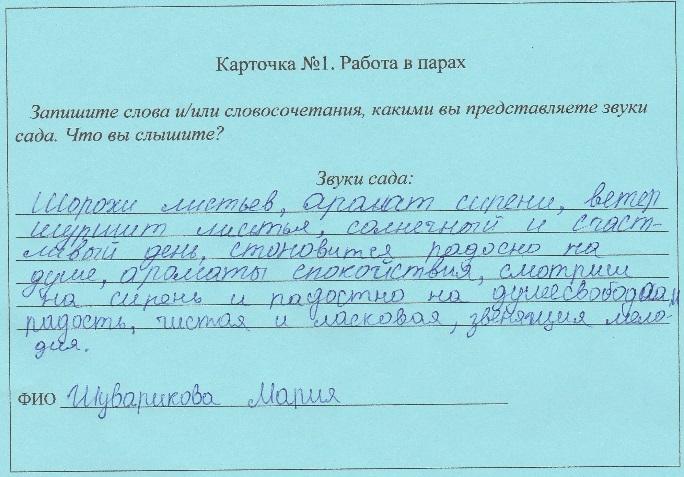 Карточка №1. Работа в парах
Запишите слова и/или словосочетания, какими вы представляете звуки
сада. Что вы слышите?
Звуки сада:
Шорохи листьев, аромат сирени, ветер
шуршит листья, солнечный и счаст-
ливый день, становится радосно на
душе, ароматы спокойствия, смотриш
на сирень и радостно на душе свобода,
радость, чистая и ласковая, звенящия мело-
дия.
ФИО Шуварикова Мария